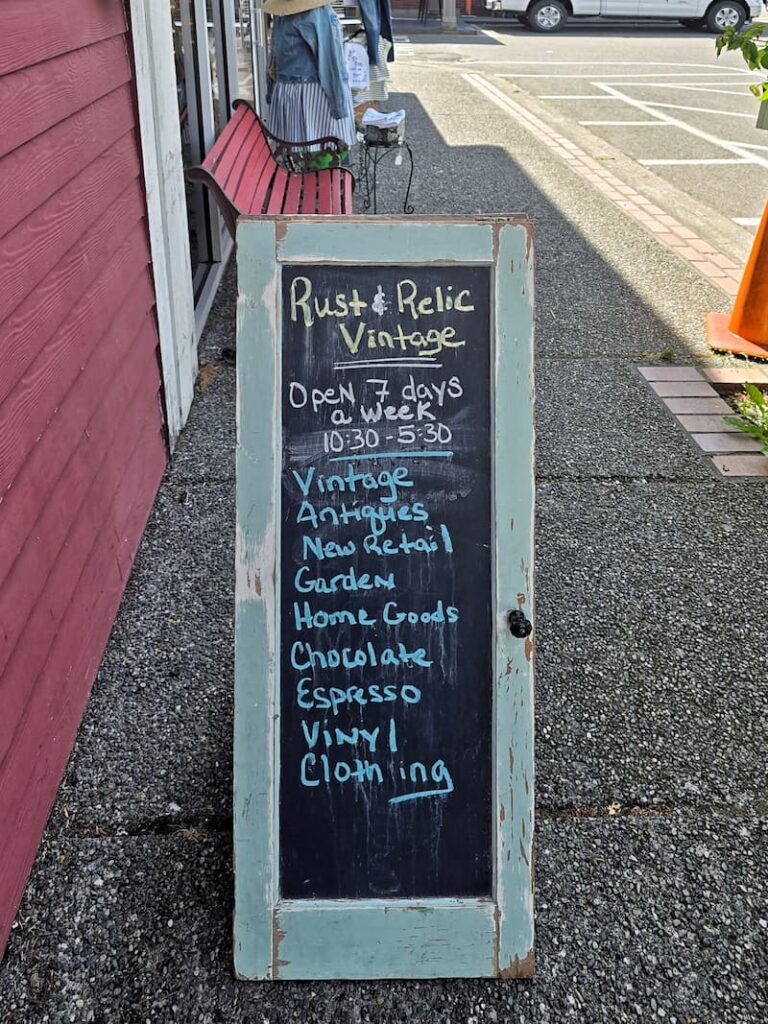 Rust & Relic
Vintage
Open 7 days
a week
10:30 - 5:30
Vintage
Antiques
New Retail
Garden
Home Goods
Chocolate
Espresso
Vinyl
Clothing